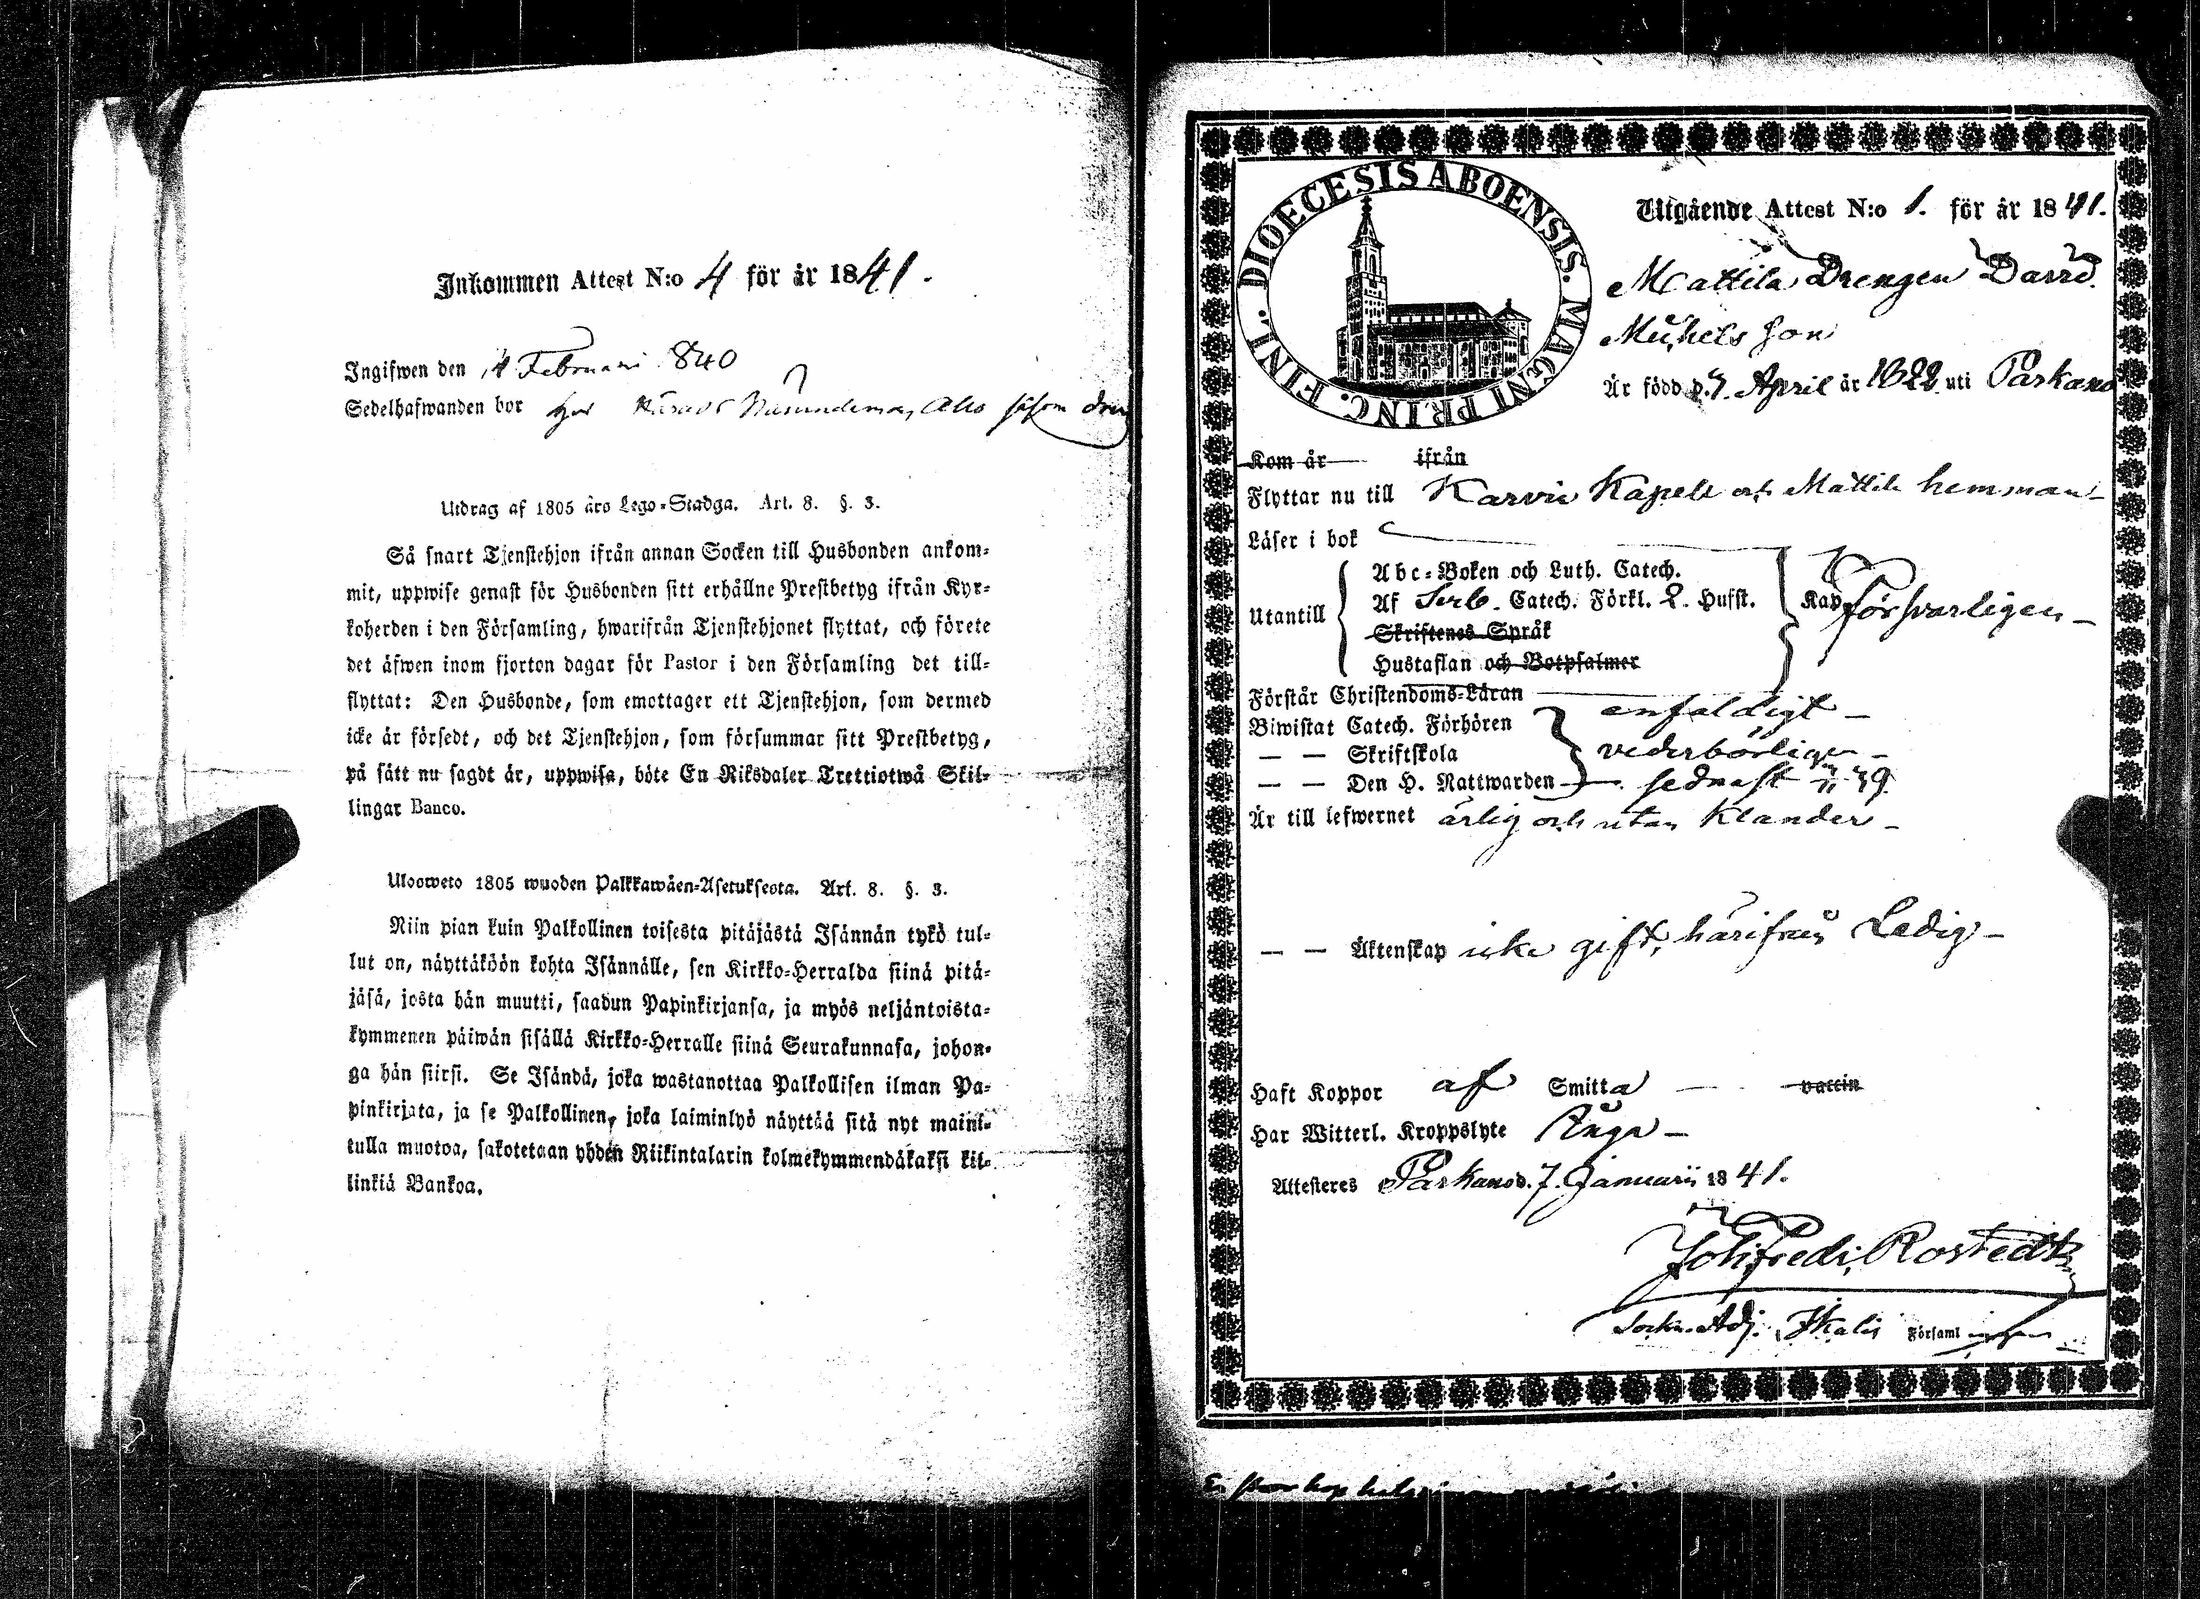 Inkommen Attest N:o 4 för år 1841.
Ingifwen den 14 Februari 840
Sedelhafwanden bor hos såsom
Utdrag af 1805 års Lego-Stadga. Art. 8. §. 3.
Så snart Tjenstehjon ifrån annan Socken till Husbonden ankom-
mit, uppwise genast för Husbonden sitt erhållne Prestbetyg ifrån Kyr-
koherden i den Församling, hwarifrån Tjenstehjonet flyttat, och förete
det äfwen inom fjorton dagar för Pastor i den Församling det till-
flyttat: Den Husbonde, som emottager ett Tjenstehjon, som dermed
icke är försedt, och det Tjenstehjon, som försummar sitt Prestbetyg,
på sätt nu sagdt är, uppwisa, böte En Riksdaler Trettiotwå Skil-
lingar Banco.
Ulosweto 1805 wuoden Palkkawäen-Asetuksesta. Art. 8. §. 3.
Niin pian kuin Palkollinen toisesta pitäjästä Isännän tykö tul-
lut on, näyttäköön kohta Isännälle, sen Kirkko-Herralda siinä pitä-
jäsä, josta hän muutti, saadun Papinkirjansa, ja myös neljäntoista-
kymmenen päiwän sisällä Kirkko-Herralle siinä Seurakunnasa, johon-
ga hän siirsi. Se Isändä, joka wastanottaa Palkollisen ilman Pa-
pinkirjata, ja se Palkollinen, joka laiminlyö näyttää sitä nyt maini-
tulla muotoa, sakotetaan yhden Riikintalarin kolmekymmendäkaksi kil-
linkiä Bankoa.
DIOECESIS ABOENSIS. MAGNI PRINC. FINL.
Utgående Attest N:o 1. för år 1841.
Mattila Drengen David
Michels son
Är född d. 7. April år 1822 uti Parkano
Kom år ifrån
Flyttar nu till Karvia Kapell och Mattila hemman
Läser i bok
Utantill
Abc-Boken och Luth. Catech.
Af Sveb. Catech. Förkl. 2. Hufst. Kap
Skriftenes Språk
Hustaflan och Botpsalmer
försvarligen
Förstår Christendoms-Läran enfaldigt
Biwistat Catech. Förhören
— — Skriftskola vederbörligen
— — Den H. Nattwarden sednast
Är till lefwernet ärlig och utan klander
— — Äktenskap icke gift, härifrån Ledig
Haft Koppor af Smitta vaccin
Har Witterl. Kroppslyte Inga
Attesteres Parkano d. 7. Januarii 1841.
Joh. Fredr. Rostedt
Sockn. Adj. i Ikalis Församl